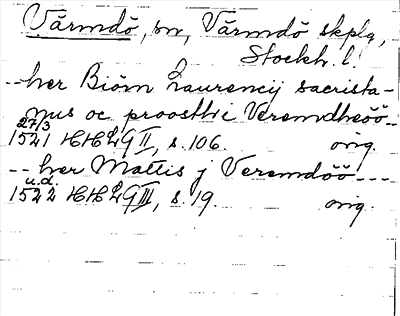 Värmdö, sn, Värmdö skplg,
Stockh. l.
--her Biörn Laurencij sacrista-
nus oc proosth i Veremdheöö--
27/3
1521 HHLG II, s. 106. orig.
-- her Mattis j Veremdöö ---
u.d.
1522 HHLG III, s. 19. orig.